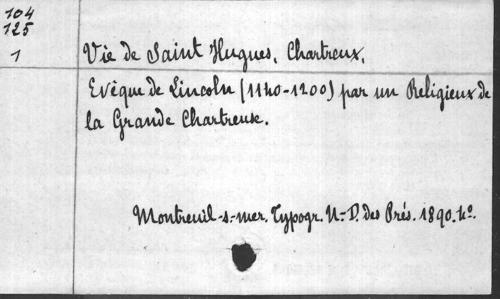 104
125
1
Vie de Saint Hugues, Chartreux,
Evêque de Lincoln (1140-1200) par un Religieux de
la Grande Chartreuse.
Montreuil-s.-mer. Typogr. N.-D. des Prés. 1890. 4o.